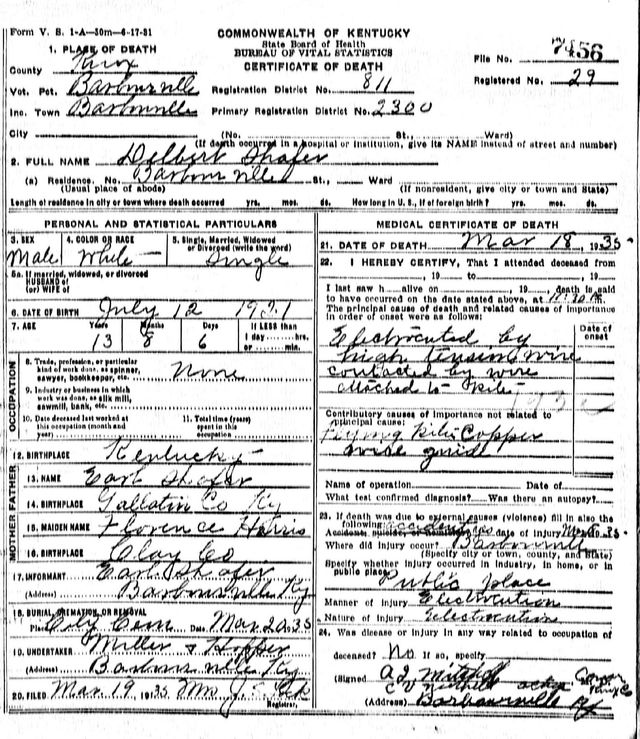 Form V. S. 1-A—50m—6-17-31
COMMONWEALTH OF KENTUCKY
State Board of Health
BUREAU OF VITAL STATISTICS
CERTIFICATE OF DEATH
File No. 7456
Registered No. 29
1. PLACE OF DEATH
County Knox
Vot. Pct. Barbourville
Registration District No. 811
Inc. Town Barbourville
Primary Registration District No. 2300
City (No. St., Ward)
(If death occurred in a hospital or institution, give its NAME instead of street and number)
2. FULL NAME Delbert Shafer
(a) Residence. No. Barbourville St., Ward
(Usual place of abode) (If nonresident, give city or town and State)
Length of residence in city or town where death occurred yrs. mos. ds. How long in U. S., if of foreign birth? yrs. mos. ds.
PERSONAL AND STATISTICAL PARTICULARS
3. SEX 4. COLOR OR RACE 5. Single, Married, Widowed
or Divorced (write the word)
Male White Single
5a. If married, widowed, or divorced
HUSBAND of
(or) WIFE of
6. DATE OF BIRTH July 12 1921
7. AGE Years Months Days If LESS than
1 day hrs.
or min.
13 8 6
OCCUPATION
8. Trade, profession, or particular
kind of work done, as spinner,
sawyer, bookkeeper, etc. None
9. Industry or business in which
work was done, as silk mill,
sawmill, bank, etc.
10. Date deceased last worked at
this occupation (month and
year)
11. Total time (years)
spent in this
occupation
12. BIRTHPLACE Kentucky
FATHER
13. NAME Earl Shafer
14. BIRTHPLACE Gallatin Co Ky
MOTHER
15. MAIDEN NAME Florence Harris
16. BIRTHPLACE Clay Co
17. INFORMANT Earl Shafer
(Address) Barbourville Ky
18. BURIAL, CREMATION, OR REMOVAL
Place City Cem Date Mar 20 35
19. UNDERTAKER Miller & Hopper
(Address) Barbourville Ky
20. FILED Mar 19 1935 Mrs J.
Registrar.
MEDICAL CERTIFICATE OF DEATH
21. DATE OF DEATH Mar 18, 1935
22. I HEREBY CERTIFY, That I attended deceased from
, 19 to , 19
I last saw h alive on , 19 , death is said
to have occurred on the date stated above, at
The principal cause of death and related causes of importance
in order of onset were as follows:
Date of
onset
Electrocuted by
high tension wire
contacted by wire
attached to kite
Contributory causes of importance not related to
principal cause:
Flying Kite Copper
wire guide
Name of operation Date of
What test confirmed diagnosis? Was there an autopsy?
23. If death was due to external causes (violence) fill in also the
following:
Accident, suicide, or homicide? accident date of injury Mar 35
Where did injury occur? Barbourville
(Specify city or town, county, and State)
Specify whether injury occurred in industry, in home, or in
public place. Public place
Manner of injury Electrocution
Nature of injury Electrocution
24. Was disease or injury in any way related to occupation of
deceased? No If so, specify
(Signed A J Mitchell Coroner
Knox Co
(Address) Barbourville Ky